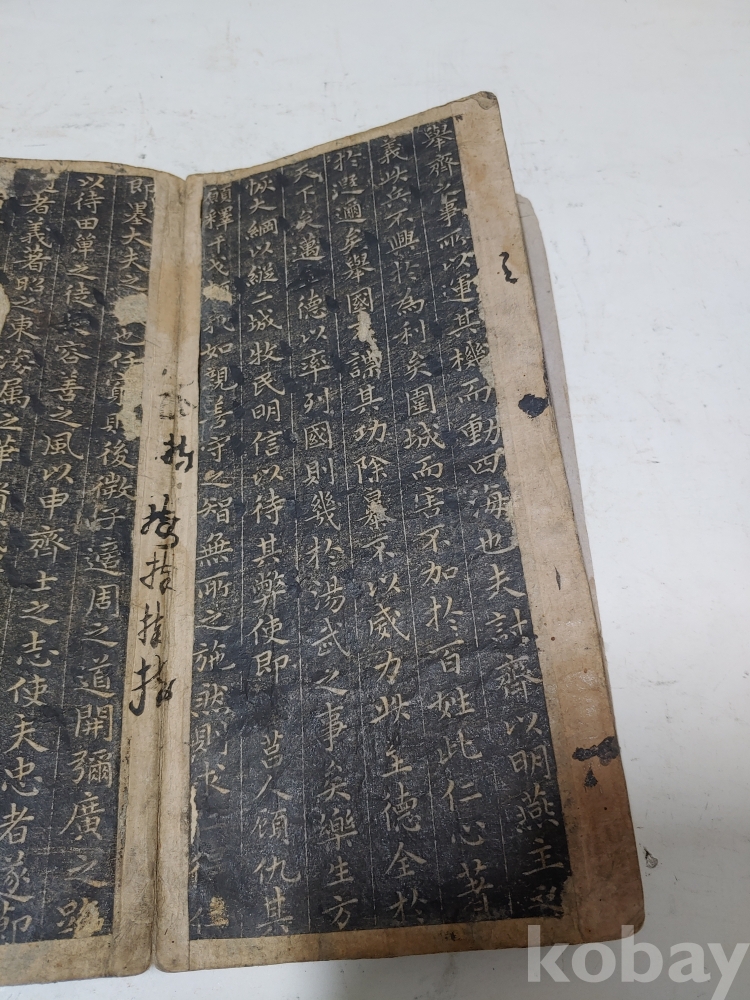 舉齊之事所以運其機而動四海也夫討齊以明燕主之
義此兵不興於為利矣圍城而害不加於百姓此仁心著
於遐邇矣舉國不謀其功除暴不以威力此至德全於
天下矣邁德以率列國則幾於湯武之事矣樂生方
恢大綱以縱二城牧民明信以待其弊使即 莒人顧仇其
願釋干戈我如親善守之智無所之施然則求仁得仁
即墨大夫之也任窮則後微子適周之道開彌廣之路
以待田單之徒容善之風以申齊士之志使夫忠者遂節
者義著昭之東海属之華裔
kobay